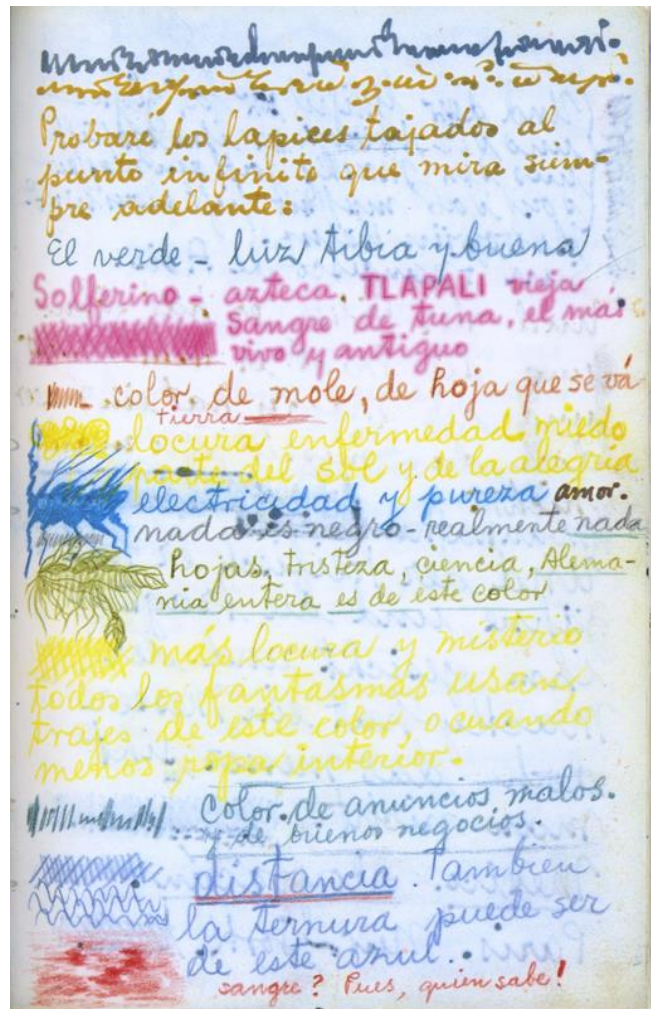 Probaré los lapices tajados al
punto infinito que mira siem-
pre adelante:
El verde - luz tibia y buena
Solferino - azteca. TLAPALI vieja
sangre de tuna, el más
vivo y antiguo
color de mole, de hoja que se vá
tierra
locura enfermedad miedo
parte del sol y de la alegria
electricidad y pureza amor.
nada es negro - realmente nada
hojas, tristeza, ciencia, Alema-
nia entera es de este color
más locura y misterio
todos los fantasmas usan
trajes de este color, o cuando
menos ropa interior.
color de anuncios malos.
y de buenos negocios.
distancia. Tambien
la ternura puede ser
de este azul.
sangre? Pues, quien sabe!